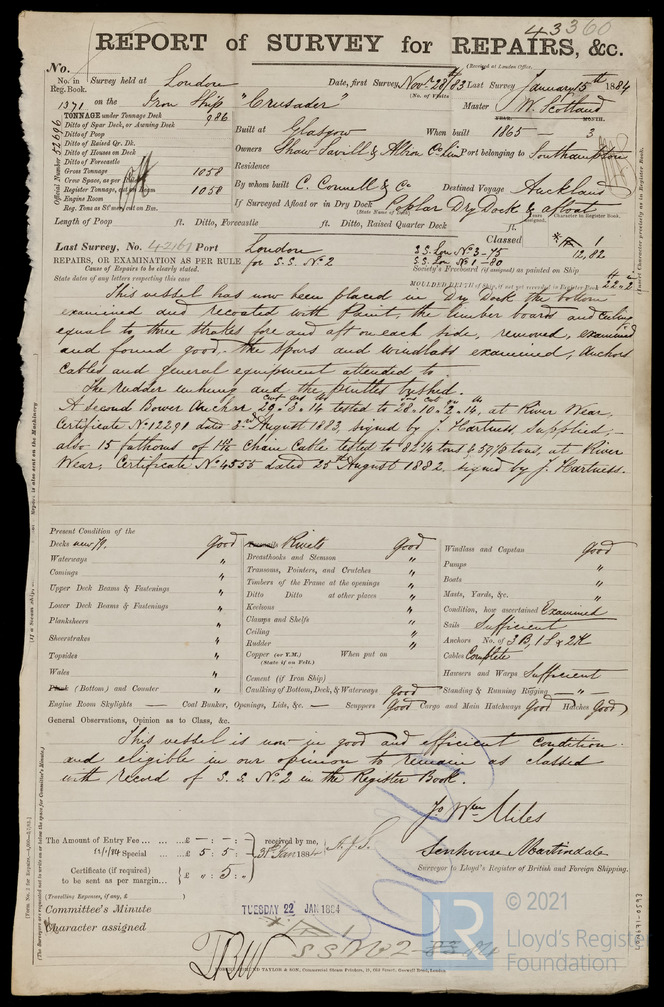 43360
REPORT of SURVEY for REPAIRS, &c.
(Received at London Office,
No.
No. in Reg. Book. Survey held at London Date, first Survey, Nov. 28th/83 Last Survey January 5th 1884
(No. of Visits
1371 on the Iron Ship "Crusader" Master W. Scotland
TONNAGE under Tonnage Deck 986
YEAR. MONTH.
Ditto of Spar Deck, or Awning Deck Built at Glasgow When built 1865 — 3
Ditto of Poop
Ditto of Raised Qr. Dk. Owners Shaw Savill & Albion Co Lim Port belonging to Southampton
Ditto of Houses on Deck
Ditto of Forecastle Residence
Gross Tonnage 1058
Crew Space, as per By whom built C. Connell & Co Destined Voyage Auckland
Register Tonnage, cut on Beam 1058
Engine Room If Surveyed Afloat or in Dry Dock Poplar Dry Dock & afloat
(State Name of Dock)
Reg. Tons as S
Official Number 52696
Length of Poop ft. Ditto, Forecastle ft. Ditto, Raised Quarter Deck ft.
Classed
Last Survey, No. 42161 Port London S.S. Lon No 3-75 1
REPAIRS, OR EXAMINATION AS PER RULE for S.S. No 2 S.S. Lon No 1-80 12,82
Cause of Repairs to be clearly stated.
Society's Freeboard (if assigned) as painted on Ship
State dates of any letters respecting this case
This vessel has now been placed in Dry Dock the bottom
examined and recoated with paint, the limber boards and ceiling
equal to three strakes fore and aft on each side, removed, examined
and found good. The spars and windlass examined, anchors
cables and general equipment attended to.
The rudder unhung and the pintles bushed.
A second Bower Anchor 29.3.14 tested to 28.10.2.14, at River Wear,
Certificate No 12291 dated 3rd August 1883, signed by J. Hartness, supplied;
also 15 fathoms of Chain Cable tested to 82¼ tons & 59 tons, at River
Wear, Certificate No 4555 dated 25th August 1882 signed by J. Hartness.
Present Condition of the
Decks new 79. Good
Waterways "
Comings "
Upper Deck Beams & Fastenings "
Lower Deck Beams & Fastenings "
Planksheers "
Sheerstrakes "
Topsides "
Wales "
Plank (Bottom) and Counter "
Treenails Rivets Good
Breasthooks and Stemson "
Transoms, Pointers, and Crutches "
Timbers of the Frame at the openings "
Ditto Ditto at other places "
Keelsons "
Clamps and Shelfs "
Ceiling "
Rudder "
Copper (or Y.M.) When put on
(State if on Felt.)
Cement (if Iron Ship)
Caulking of Bottom, Deck, & Waterways good
Windlass and Capstan good
Pumps "
Boats "
Masts, Yards, &c. "
Condition, how ascertained Examined
Sails Sufficient
Anchors No. of 3 B, 1 S & 2 K
Cables Complete
Hawsers and Warps Sufficient
Standing & Running Rigging — " —
Engine Room Skylights — Coal Bunker, Openings, Lids, &c. — Scuppers Good Cargo and Main Hatchways Good Hatches Good
General Observations, Opinion as to Class, &c.
This vessel is now in good and efficient condition
and eligible in our opinion to remain as classed
with record of S.S. No 2 in the Register Book.
Jo Wm Miles
Senhouse Martindale
Surveyor to Lloyd's Register of British and Foreign Shipping.
The Amount of Entry Fee ... £ — : — :
Special ... £ 5 : 5 : received by me,
Certificate (if required) to be sent as per margin... £ " : 5 : " 1884 A.J.S.
(Travelling Expenses, if any, £ )
Committee's Minute TUESDAY 22 JAN 1884
Character assigned
SS No 2
ROBERT EDMUND TAYLOR & SON, Commercial Steam Printers, 19, Old Street, Goswell Road, London
© 2021
LR Lloyd's Register
Foundation